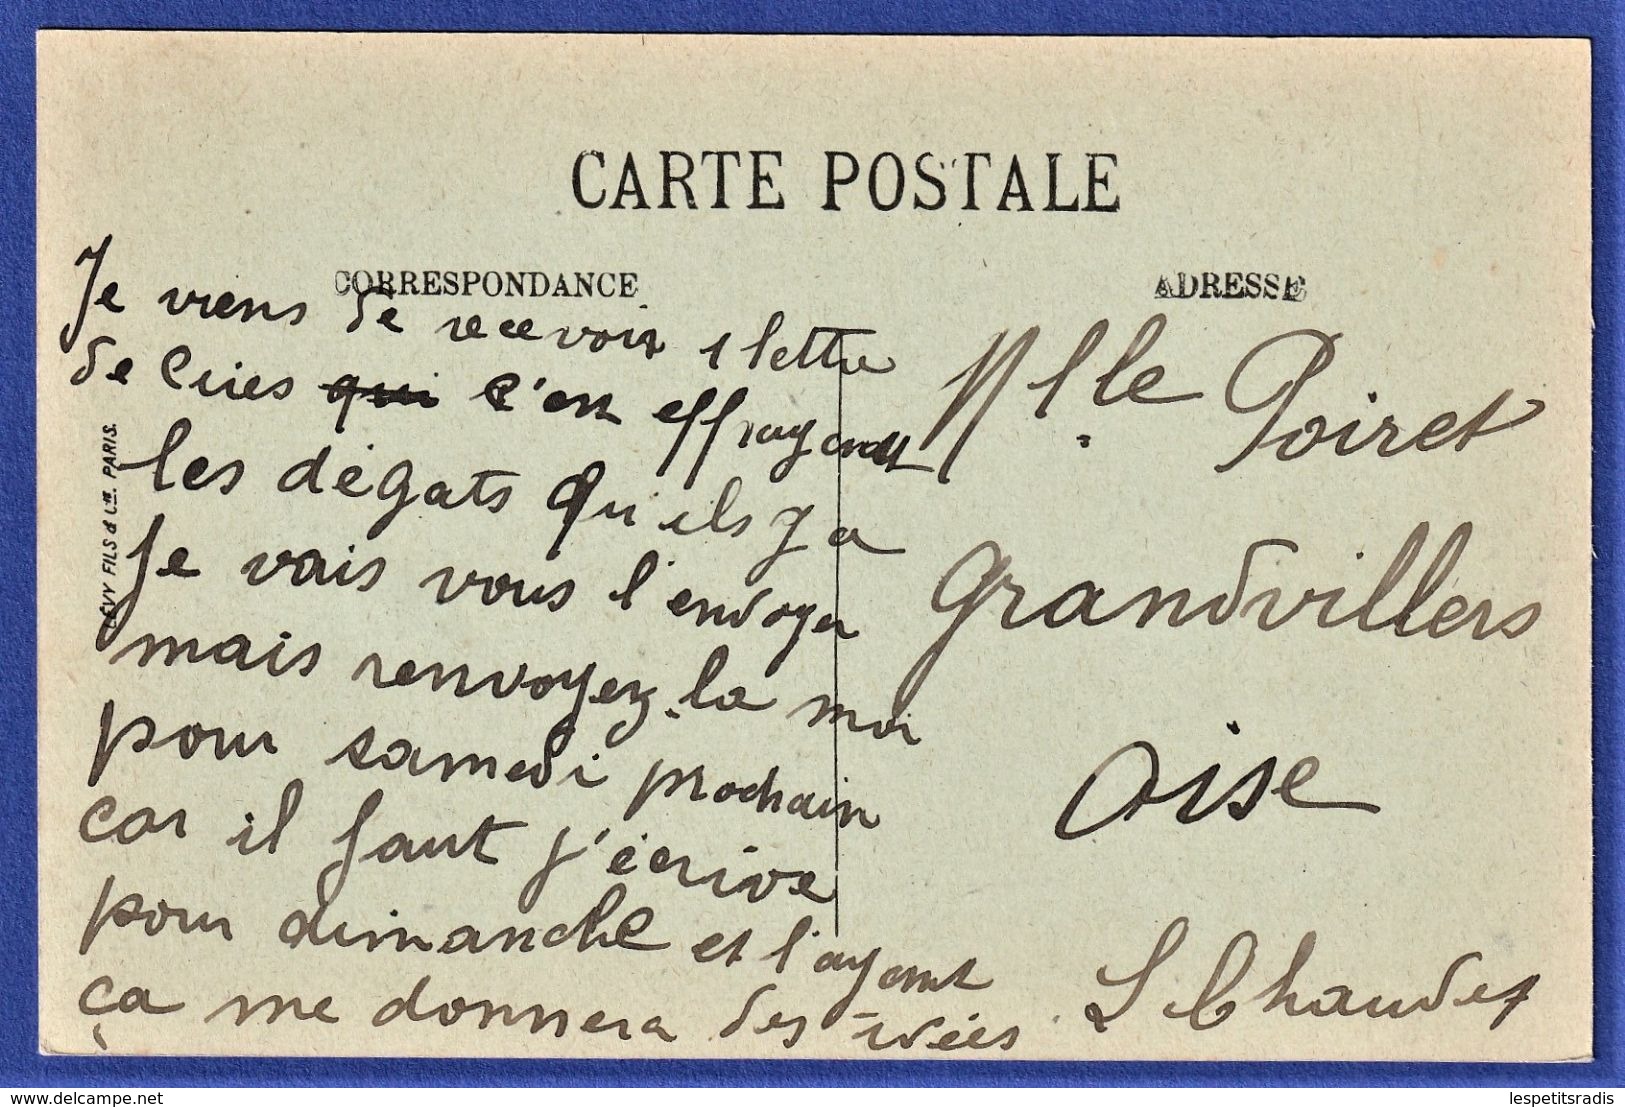 CARTE POSTALE
CORRESPONDANCE
ADRESSE
Je viens de recevoir 1 lettre
de Cuies qui c'est effrayant
les dégats qu'ils y a
Je vais vous l'envoyer
mais renvoyez-la moi
pour samedi prochain
car il faut j'écrive
pour dimanche et l'ayant
ça me donnera des idées.
Mlle Poiret
Grandvillers
Oise
L Chaudet
LÉVY FILS & Cie. PARIS.
delcampe.net
lespetitsradis